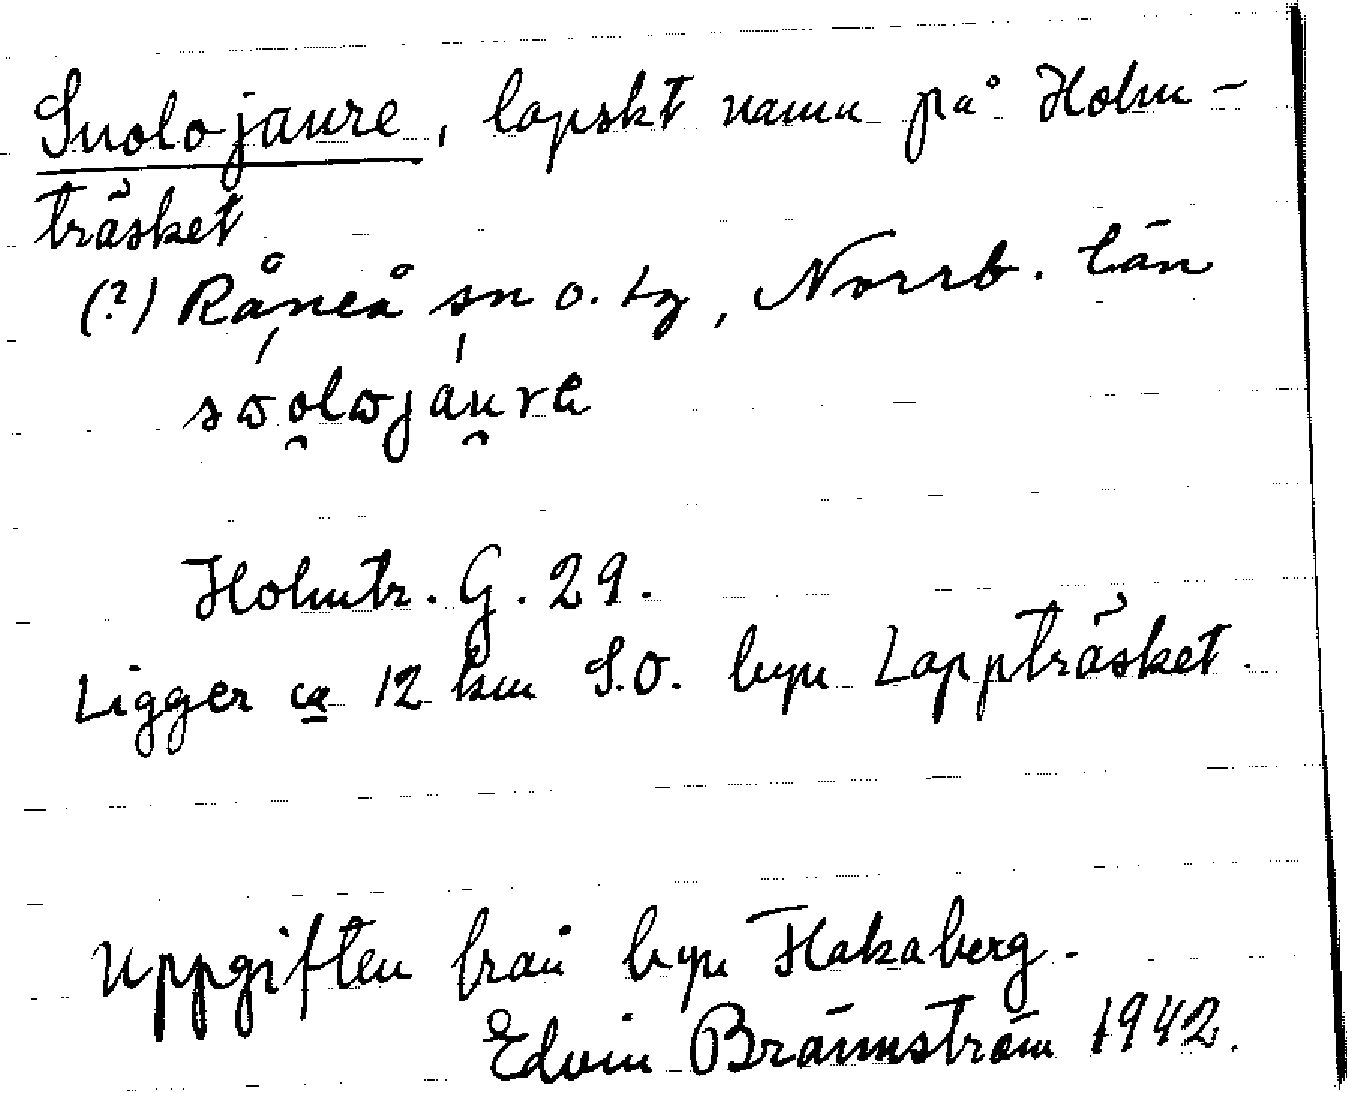 Suolojaure, lapskt namn på Holm-
träsket
(?) Råneå sn o. tg, Norrb. län
Holmtr. G. 29.
Ligger ca 12 km S.O. byn Lappträsket.
Uppgiften från byn Flakaberg.
Edvin Brännström 1942.